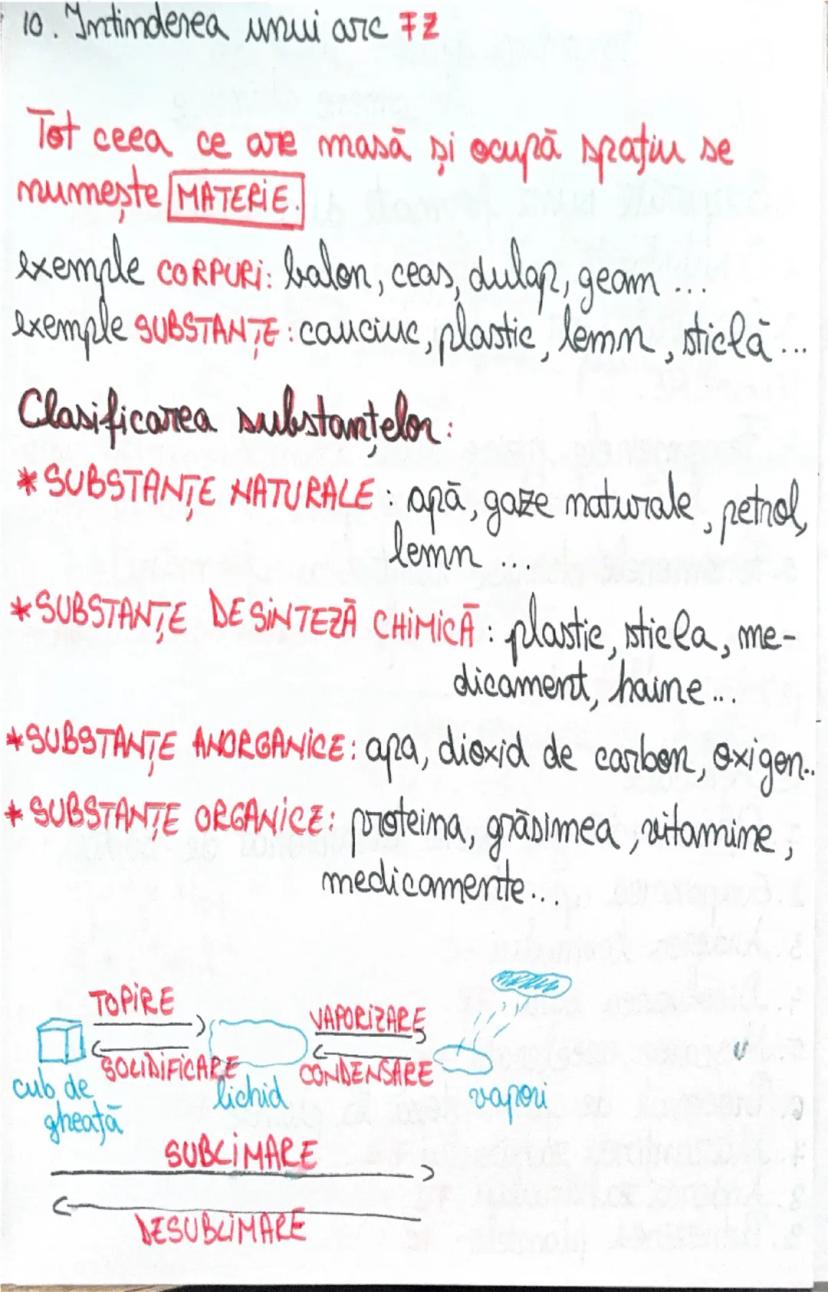 10. Intinderea unui arc FZ
Tot ceea ce are masă și ocupă spațiu se
numește MATERIE.
exemple CORPURI: balon, ceas, dulap, geam ...
exemple SUBSTANȚE: cauciuc, plastic, lemn, sticlă...
Clasificarea substanțelor:
* SUBSTANȚE NATURALE: apă, gaze naturale, petrol,
lemn ...
* SUBSTANȚE DE SINTEZĂ CHIMICĂ: plastic, sticla, me-
dicament, haine...
* SUBSTANȚE ANORGANICE: apa, dioxid de carbon, oxigen..
* SUBSTANȚE ORGANICE: proteina, grăsimea, vitamine,
medicamente...
TOPIRE
VAPORIZARE
SOLIDIFICARE
CONDENSARE
cub de
gheață
lichid
vapori
SUBLIMARE
DESUBLIMARE